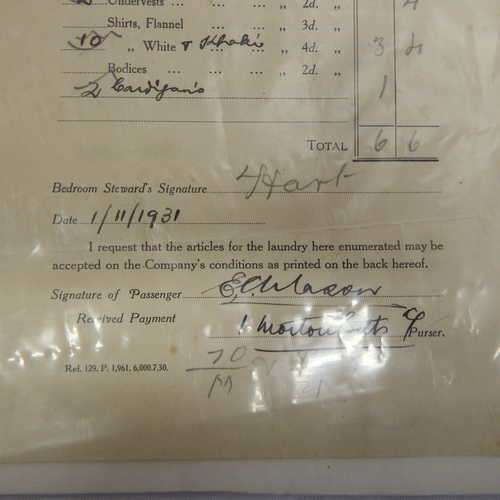 2 Undervests ... ... ... ,, 2d. ,, 4
Shirts, Flannel ,, 3d. ,,
10 ,, White & Khaki ... ... ,, 4d. ,, 3 4
Bodices ... ... ... ,, 2d. ,,
2 Cardigans 1
TOTAL 6 6
Bedroom Steward's Signature Hart
Date 1/11/1931
I request that the articles for the laundry here enumerated may be
accepted on the Company's conditions as printed on the back hereof.
Signature of Passenger
Received Payment Purser.
70
Ref. 129. P. 1,961. 6,000.7.30.